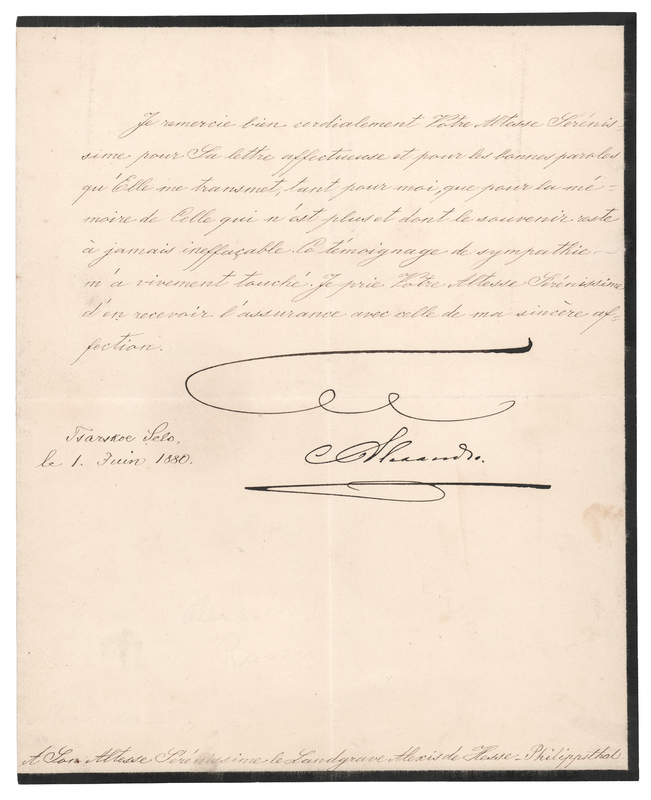 Je remercie bien cordialement Votre Altesse Sérénis-
sime pour Sa lettre affectueuse et pour les bonnes paroles
qu'Elle me transmet, tant pour moi, que pour la mé-
moire de Celle qui n'est plus et dont le souvenir reste
à jamais ineffaçable. Ce témoignage de sympathie
m'a vivement touché. Je prie Votre Altesse Sérénissime
d'en recevoir l'assurance avec celle de ma sincère af-
fection.
Alexandre.
Tsarskoe Selo,
le 1. Juin 1880.
A Son Altesse Sérénissime le Landgrave Alexis de Hesse-Philippsthal